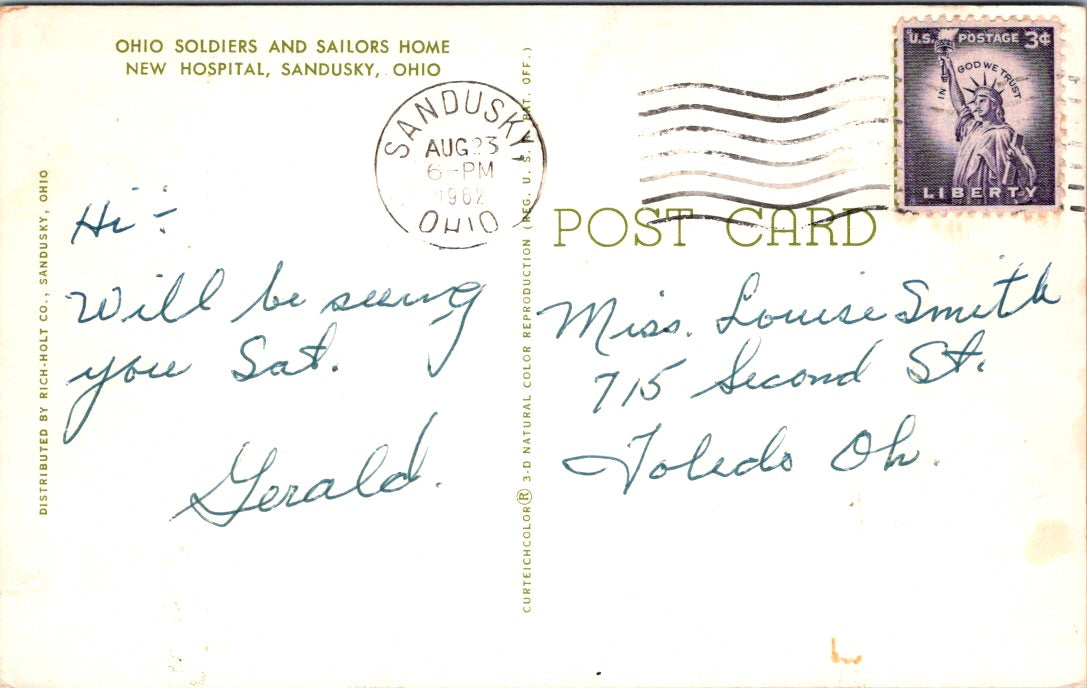 OHIO SOLDIERS AND SAILORS HOME
NEW HOSPITAL, SANDUSKY, OHIO
DISTRIBUTED BY RICH-HOLT CO., SANDUSKY, OHIO
SANDUSKY,
AUG 23
6-PM
1962
OHIO
U.S. POSTAGE 3¢
IN GOD WE TRUST
LIBERTY
POST CARD
CURTEICHCOLOR® 3-D NATURAL COLOR REPRODUCTION (REG. U. S. A. PAT. OFF.)
Hi -
Will be seeing
you Sat.
Gerald.
Miss. Louise Smith
715 Second St.
Toledo Oh.